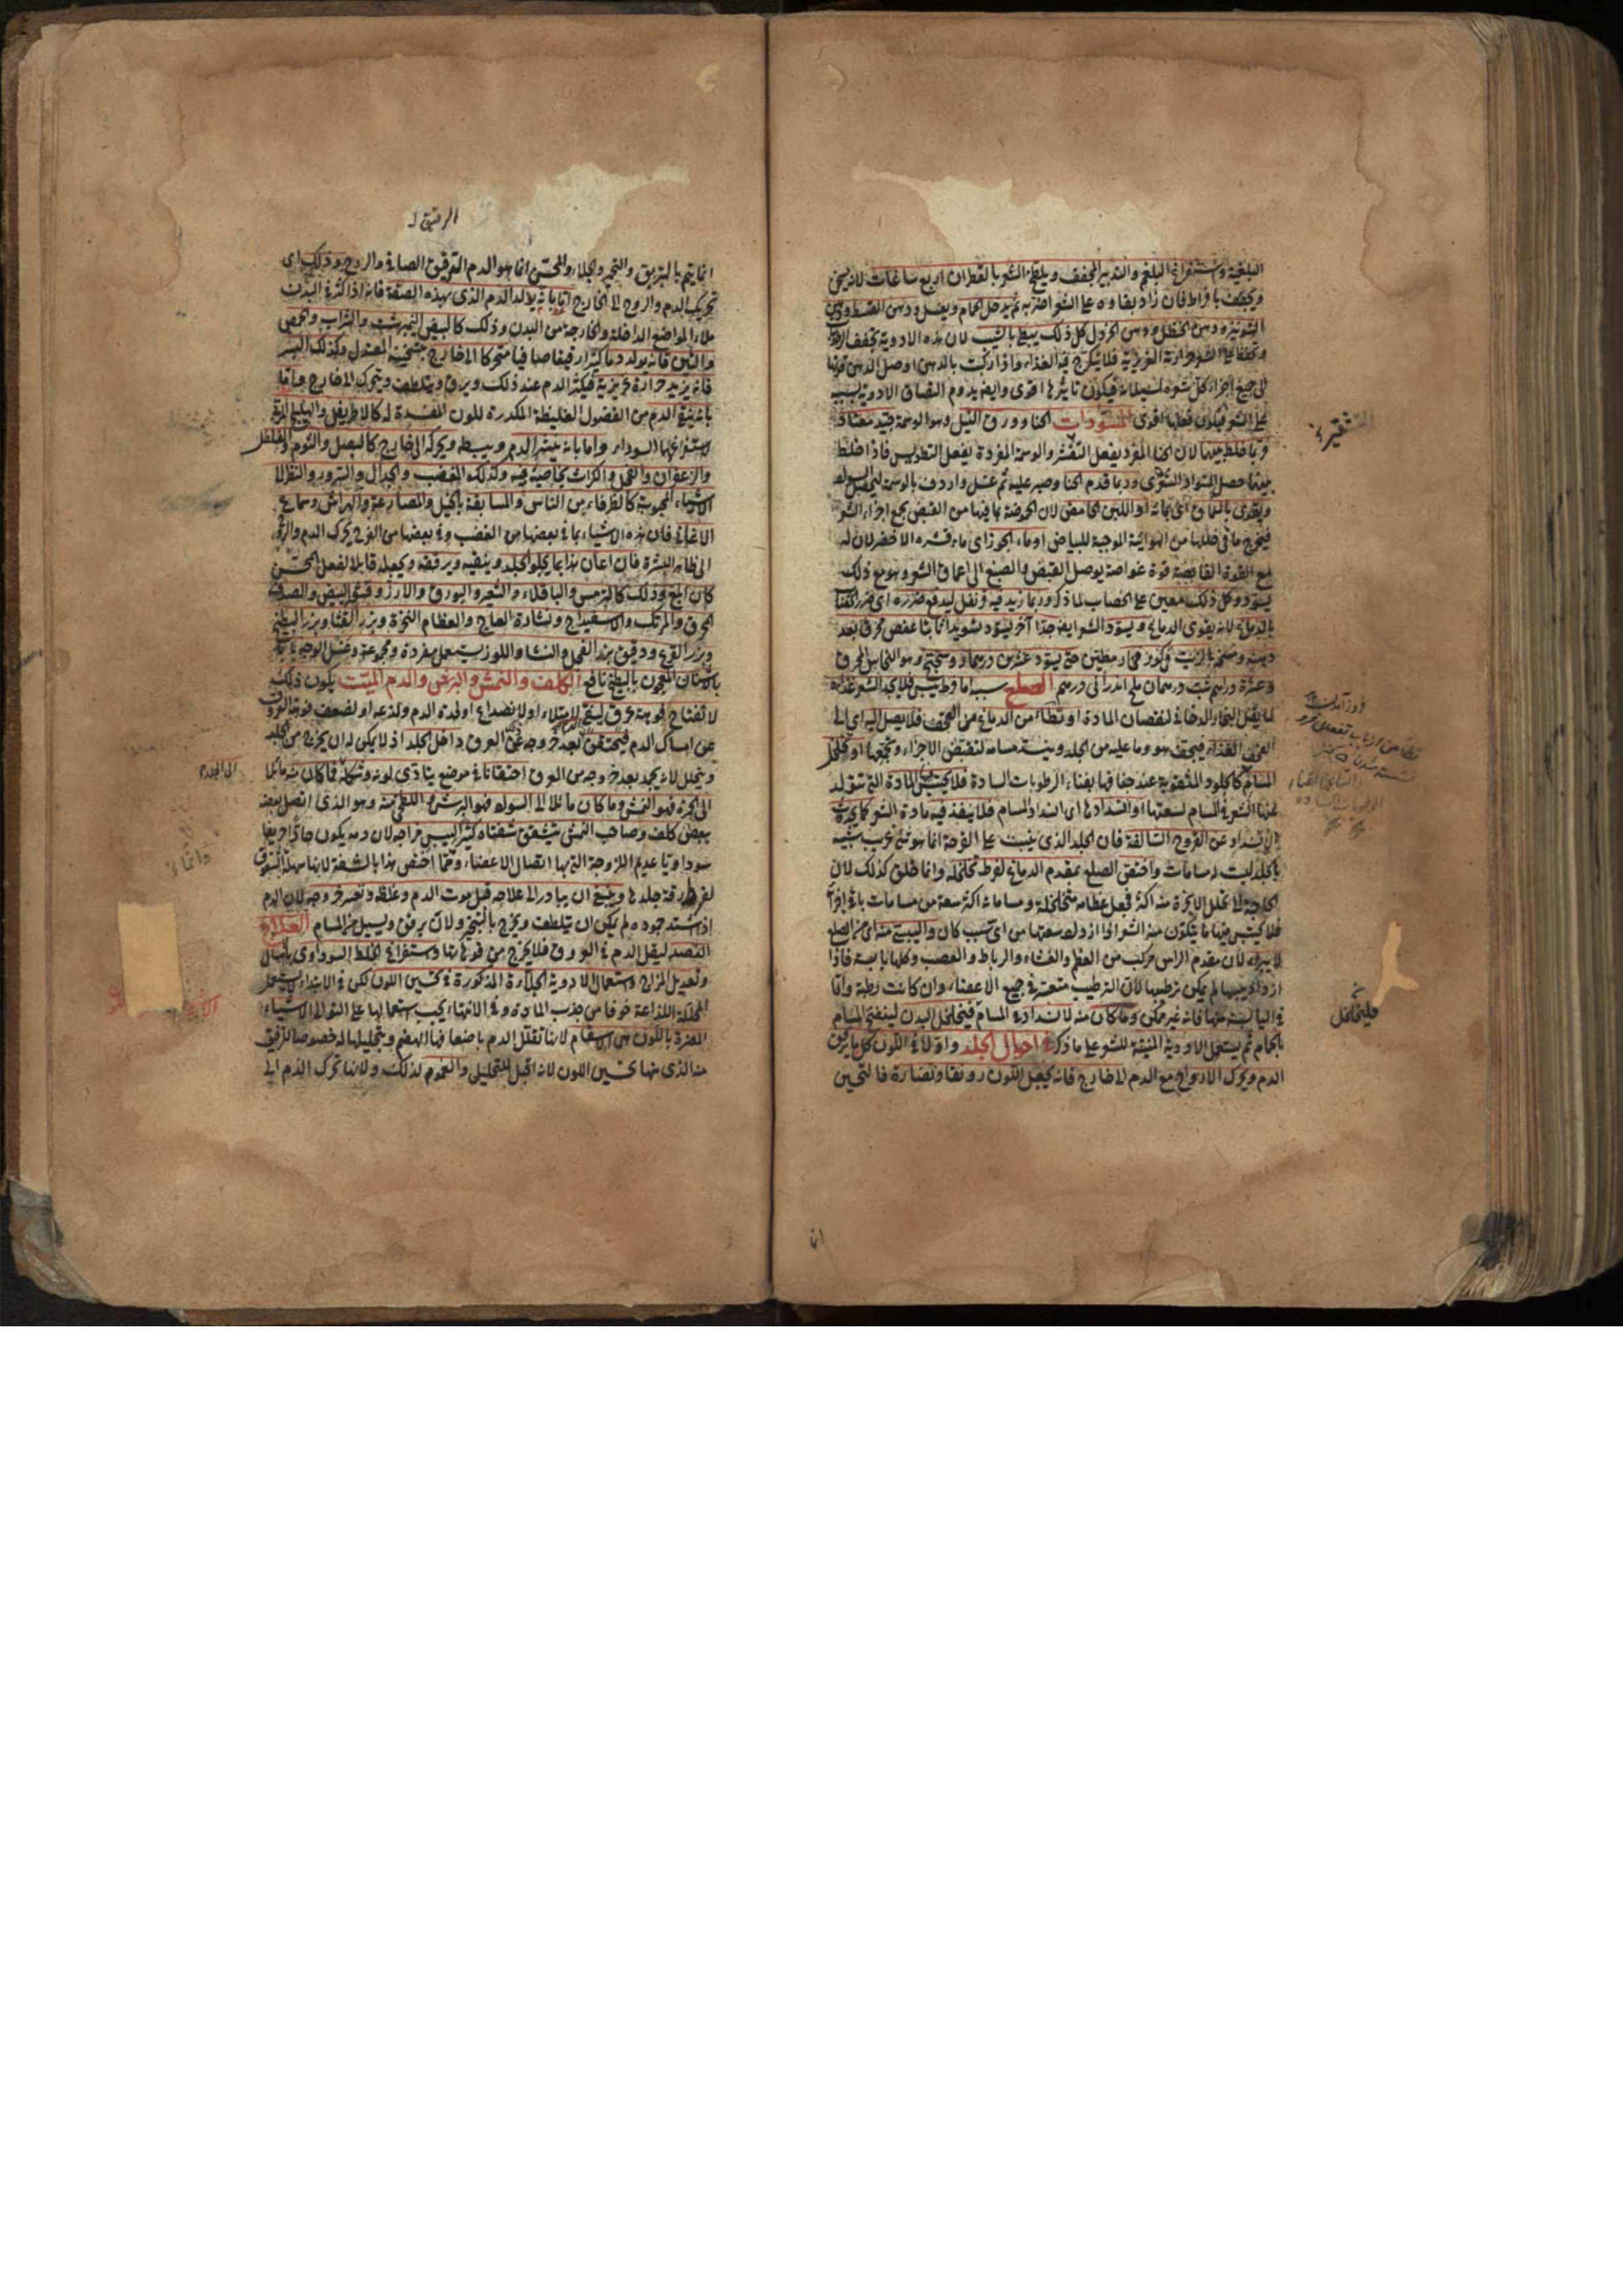 البلغمية واستفراغ البلغم والتدبير المجفف ويلطخ الشعر بالقطران اربع ساعات لانه يسخن
ويجفف بافراط فان زاد بقاوه على الشعر اضر به ثم يدخل الحمام ويغسل ودهن القسط ودهن
الشونيز ودهن الحنظل ودهن الخردل كل ذلك يبطئ بالشيب لان هذه الادوية تجفف
وتحفظ على الشعر حرارته الغريزية فلا يتكرج فيه الغذاء واذا ركبت بالدهن اوصل الدهن قوتها
الى جميع اجزاء كل شعره لسيلانه فيكون تاثيرها اقوى وايضا يدوم التصاق الادوية بسببه
على الشعر فيكون فعلها اقوى المسودات الحنا وورق النيل وهو الوسمة جيد معتاد
وربما خلط بينهما لان الحنا المفرد يفعل التشقير والوسمة المفردة يفعل التطويس فاذا خلط
بينهما حصل السواد الشعرى وربما قدم الحنا وصبر عليه ثم غسل واردف بالوسمة
ويقوى بالسماق اى بمائه او اللبن الحامض لان الحموضة بما فيها من القبض يجمع اجزاء الشعر
فيخرج ما فى خللها من الهوائية الموجبة للبياض او ماء الجوز اى ماء قشره الاخضر لان له
مع القوة القابضة قوة غواصة يوصل القبض والصبغ الى اعماق الشعر وهو مع ذلك
يسود وكل ذلك معين على الخضاب لما ذكر وربما زيد فيه قرنفل ليدفع ضرره اى ضرر الحنا
بالدماغ لانه يقوى الدماغ ويسود الشعر ايضا جدا آخر ليسود تسويدا ثابتا عفص محرق بعد
دهنه ومسحه بالزيت فى كوز فخار مطين حتى يسود عشرين درهما وروسختج وهو النحاس المحرق
وعشرة دراهم شب درهمان ملح اندرانى درهم الصلع سببه اما فرط يبس فلا يجد الشعر غذاه
لما يقل البخار الدخانى لنقصان المادة او تطامن الدماغ عن القحف فلا يصل اليه اى الى
القحف الغذاء فيجف هو وما عليه من الجلد وينسد مسامه لتقبض الاجزاء وتجمعها او تخلخل
المسام كالجلود المثقوبة عند جفافها بفناء الرطوبات السادة فلا يحتبس المادة التى تتولد
عنها الشعر فى المسام لسعتها او انسدادها اى انسداد المسام فلا ينفذ فيه مادة الشعر كما يحدث
الانسداد عن القروح السالفة فان الجلد الذى ينبت على القرحة انما هو شئ غريب شبيه
بالجلد ليست له مسامات واختص الصلع بمقدم الدماغ لفرط تخلخله وانما خلق كذلك لان
الحاجة الى تحلل الابخرة منه اكثر فجعل عظامه متخلخلة ومساماته اكثر سعة من مسامات باقى اجزائه
فلا يحتبس فيها ما يتكون منه الشعر اذا ازداد سعتها من اى سبب كان واليبسى منه اى من الصلع
لا يبرء لان مقدم الراس مركب من العظم والغشاء والرباط والعصب وكلها يابسة فاذا
ازداد يبسها لم يمكن ترطيبها لان الترطيب متعسر فى جميع الاعضاء وان كانت رطبة واما
فى اليابسة منها فانه غير ممكن وما كان منه لانسداد المسام فيخلخل البدن لينفتح المسام
بالحمام ثم يستعمل الادوية المنبتة للشعر على ما ذكر فى احوال الجلد واولا فى اللون كل ما يرقق
الدم ويحرك الارواح مع الدم الى خارج فانه يجعل اللون رونقا ونضارة فالتحسين
التشقير
فليخلخل
انما
الرقيق
انما يتم بالتبريق والتحمير والجلاء والمحسن انما هو الدم الرقيق الصافى والروح وذلك اى
تحريك الدم والروح الى الخارج اما بانه يولد الدم الذى بهذه الصفة فانه اذا كثر فى البدن
ملاء المواضع الداخلة والخارجة من البدن وذلك كالبيض النيمبرشت والشراب والحمص
والتين فانه يولد دما كثيرا رقيقا صافيا متحركا الى خارج بتسخينه المعتدل وكذلك البسر
فانه يزيد حرارة غريزية فيكثر الدم عند ذلك ويرق ويتلطف ويتحرك الى خارج واما
بانه ينقى الدم من الفضول الغليظة المكدرة للون المفسدة له كالاطريفل والهليلج المربى
استفراغهما السوداء واما بانه ينشر الدم ويبسطه ويحركه الى خارج كالبصل والثوم والفلفل
والزعفران والفجل والكراث بخاصية فيه وكذلك الغضب والجدال والسرور والنظر الى
الاشياء المحبوبة كالظرفاء من الناس والمسابقة بالخيل والمصارعة والهراش وسماع
الاغانى فان هذه الاشياء بما فى بعضها من الغضب وفى بعضها من الفرح يحرك الدم والروح
الى ظاهر البشرة فان اعان هذا بما يجلو الجلد وينقيه ويرققه ويجعله قابلا لفعل المحسن
كان ابلغ وذلك كالترمس والباقلاء والشعير والبورق والارز وقشر البيض والصدف
المحرق والمرتك والاسفيداج ونشارة العاج والعظام النخرة وبزر القثا وبزر البطيخ
وبزر القرع ودقيق بزر الفجل والنشا واللوز يستعمل مفردة ومجموعة وغسل الوجه
بالاشنان المعجون بالبطيخ نافع الكلف والنمش والبرش والدم الميت يكون ذلك
لانفتاح فوهة عرق ليفى للامتلاء او لانصداع او لحدة الدم ولذعه او لضعف قوة العروق
عن امساك الدم فيحتقن بعد خروجه عن العرق داخل الجلد اذ لا يمكن له ان يخرج من الجلد
ويتحلل لانه يجمد بعد خروجه من العرق احتقانا فى موضع يتادى لونه وشكله فما كان منه مائلا
الى الحمرة فهو النمش وما كان مائلا الى السواد فهو البرش واللطخى منه وهو الذى اتصل بعضه
ببعض كلف وصاحب النمش يتشقق شفتاه كثيرا ليبس مزاجه لان دمه يكون حارا حريفا
سوداويا عديم اللزوجة التى بها اتصال الاعضاء وانما اختص هذا بالشفة لانها سهلة التشقق
لفرط رقة جلدها وينبغى ان يبادر الى علاجه قبل موت الدم وغلظه وتعسر خروجه لان الدم
اذا اشتد جموده لم يمكن ان يتلطف ويخرج بالتبخير ولا ان يرقق ويسيل من المسام العلاج
الفصد ليقل الدم فى العروق فلا يخرج من فوهاتها واستفراغ الخلط السوداوى
وتعديل المزاج واستعمال الادوية الجلاءة المذكورة فى تحسين اللون لكن فى الابتداء لا يستعمل
المحللة اللذاعة خوفا من جذب المادة وفى الانتهاء يجب استعمالها على التوالى الاشياء
المضرة باللون هى الاسقام لانها تقلل الدم باضعافها الهضم وبتحليلها له خصوصا الرقيق
منه الذى منه تحسين اللون لانه اقبل للتحليل والغموم لذلك ولانها تحرك الدم الى
الى الجلد